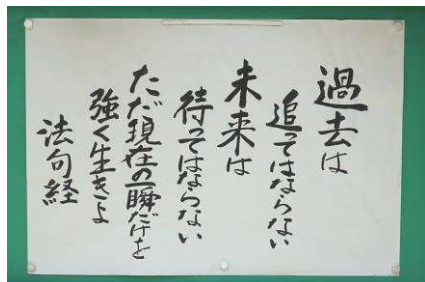 過去は
追ってはならない
未来は
待ってはならない
ただ現在の一瞬だけを
強く生きよ
法句経